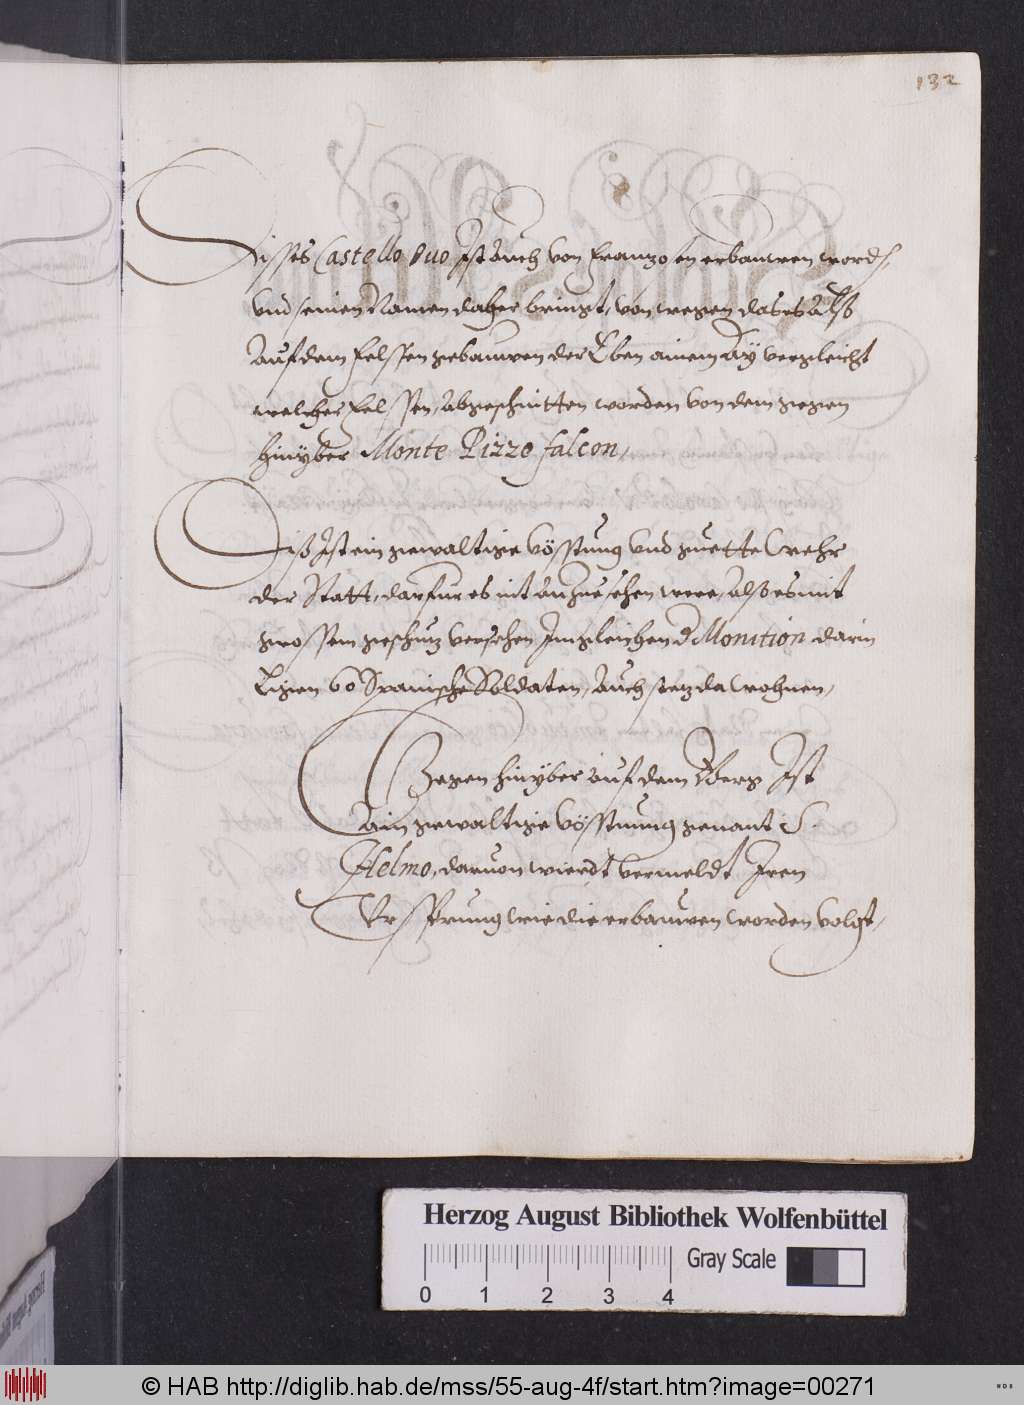 132
Disses Castello Ouo Ist auch von Franzosen erbauwen word,
vnd seinen Namen daher bringt, von wegen das es Alß
Auf dem Felssen gebauwen der Eben ainem Aÿ vergleicht
welcher Felssen, abgeschnitten worden von dem gegen
hinÿber Monte Pizzo falcon,
Diß Ist ein gewaltige vösstung vnd guette Wehr
der Statt, darfur es nit anzuesehen were, Alß es mit
grossem geschuz versehen Imgleichen Monition darin
Ligen 60 Spanische Soldaten, Auch stez da wohnen,
Gegen hinÿber auf dem Berg Ist
ain gewaltige vösstnung genant S.
Helmo, daruon wierdt vermeldt Iren
Vrsprung wie die erbauwen worden volgt,
Herzog August Bibliothek Wolfenbüttel
Gray Scale
0 1 2 3 4
© HAB http://diglib.hab.de/mss/55-aug-4f/start.htm?image=00271